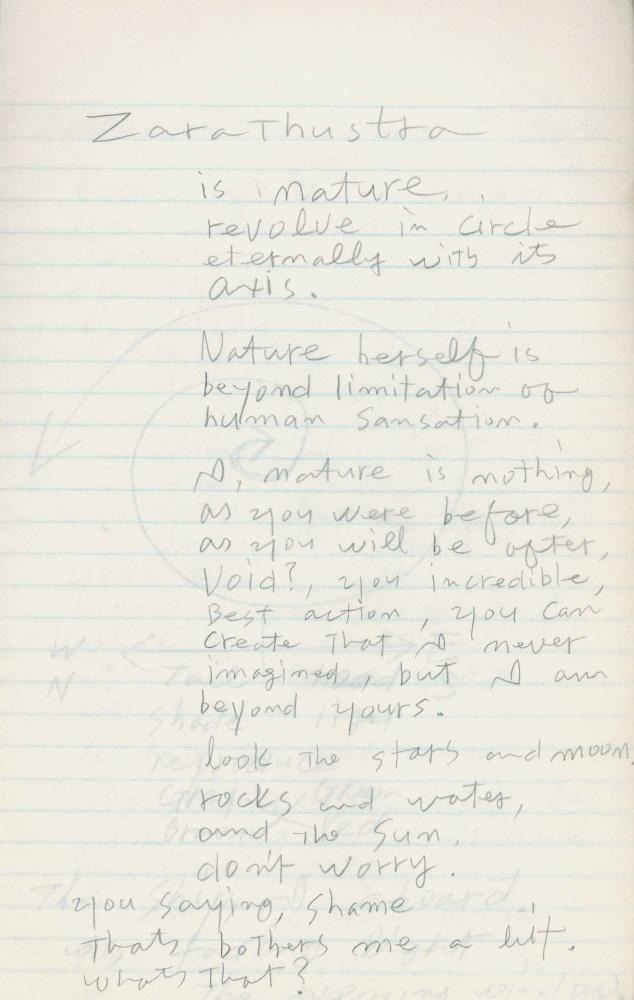 Zarathustra
is nature,
revolve in circle
eternally with its
axis.
Nature herself is
beyond limitation of
human Sansation.
I, nature is nothing,
as you were before,
as you will be after,
Void?, you incredible,
Best action, you can
create that I never
imagined, but I am
beyond yours.
look the stars and moon,
rocks and water,
and the Sun.
don't worry.
you saying, shame
thats bothers me a bit.
whats that?
W
N